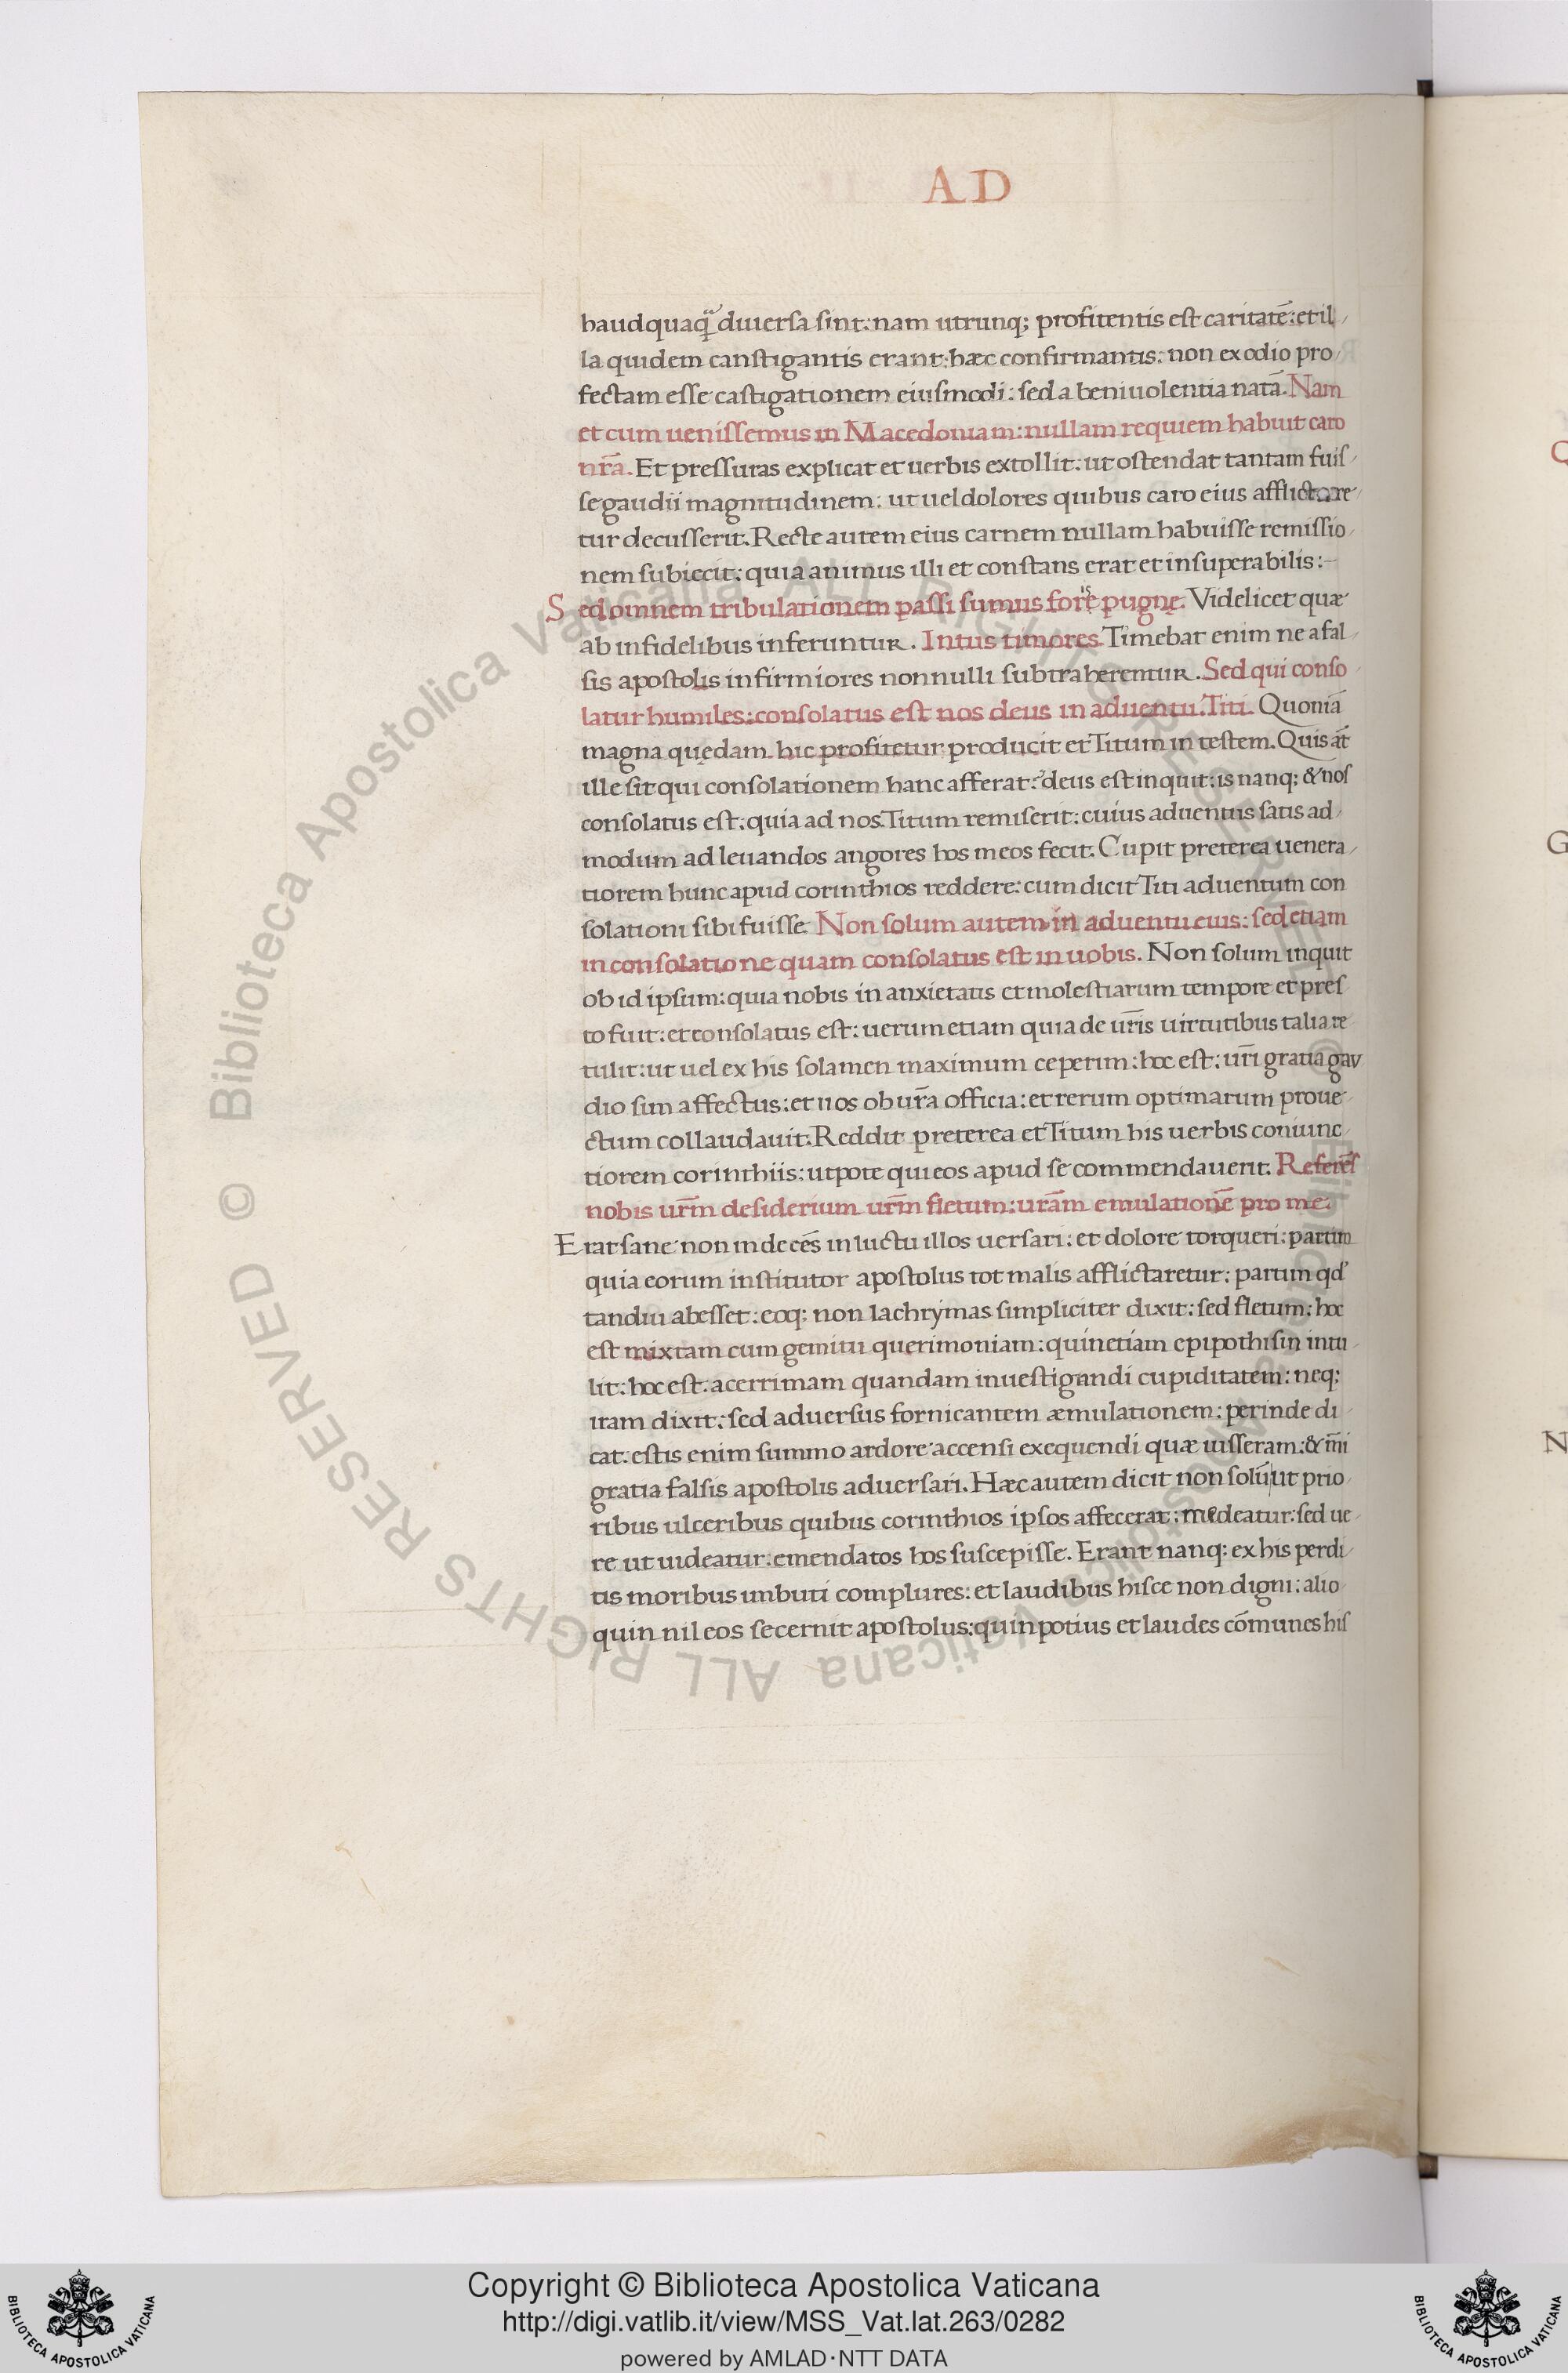 AD
haudquaq̃ diuersa sint: nam utrunq; profitentis est caritatẽ: et il
la quidem canstigantis erant: hæc confirmantis: non ex odio pro
fectam esse castigationem eiusmodi: sed a beniuolentia natã. Nam
et cum uenissemus in Macedoniam: nullam requiem habuit caro
nr̃a. Et pressuras explicat et uerbis extollit: ut ostendat tantam fuis
se gaudii magnitudinem: ut uel dolores quibus caro eius afflictare
tur decusserit. Recte autem eius carnem nullam habuisse remissio
nem subiecit: quia animus illi et constans erat et insuperabilis:
Sed omnem tribulationem passi sumus foris pugnę. Videlicet quæ
ab infidelibus inferuntur. Intus timores Timebat enim ne a fal
sis apostolis infirmiores nonnulli subtraherentur. Sed qui conso
latur humiles: consolatus est nos deus in aduentu Titi. Quoniã
magna quędam hic profitetur producit et Titum in testem. Quis at̃
ille sit qui consolationem hanc afferat: deus est inquit: is nanq; & nos
consolatus est: quia ad nos Titum remiserit: cuius aduentus satis ad
modum ad leuandos angores hos meos fecit. Cupit preterea uenera
tiorem hunc apud corinthios reddere: cum dicit Titi aduentum con
solationi sibi fuisse. Non solum autem in aduentu eius: sed etiam
in consolatione quam consolatus est in uobis. Non solum inquit
ob id ipsum: quia nobis in anxietatis et molestiarum tempore et pres
to fuit: et consolatus est: uerum etiam quia de ur̃is uirtutibus talia re
tulit: ut uel ex his solamen maximum ceperim: hoc est: ur̃i gratia gau
dio sim affectus: et uos ob ur̃a officia: et rerum optimarum proue
ctum collaudauit. Reddit preterea et Titum his uerbis coniunc
tiorem corinthiis: utpote qui eos apud se commendauerit. Referẽs
nobis ur̃m desiderium ur̃m fletum: ur̃am emulationẽ pro me.
Erat sane non indecẽs in luctu illos uersari: et dolore torqueri: partim
quia eorum institutor apostolus tot malis afflictaretur: partim qd'
tandiu abesset: eoq; non lachrymas simpliciter dixit: sed fletum: hoc
est mixtam cum gemitu querimoniam: quinetiam epipothisin intu
lit: hoc est: acerrimam quandam inuestigandi cupiditatem: neq;
itam dixit: sed aduersus fornicantem æmulationem: perinde di
cat: estis enim summo ardore accensi exequendi quæ iusseram: & m̃i
gratia falsis apostolis aduersari. Hæc autem dicit non solũ ut prio
ribus ulceribus quibus corinthios ipsos affecerat: medeatur: sed ue
re ut uideatur: emendatos hos suscepisse. Erant nanq; ex his perdi
tis moribus imbuti complures: et laudibus hisce non digni: alio
quin nil eos secernit apostolus: quin potius et laudes cõmunes his
© Biblioteca Apostolica Vaticana ALL RIGHTS RESERVED
© Biblioteca Apostolica Vaticana ALL RIGHTS RESERVED
G
N
Copyright © Biblioteca Apostolica Vaticana
http://digi.vatlib.it/view/MSS_Vat.lat.263/0282
powered by AMLAD·NTT DATA
BIBLIOTECA APOSTOLICA VATICANA
BIBLIOTECA APOSTOLICA VATICANA